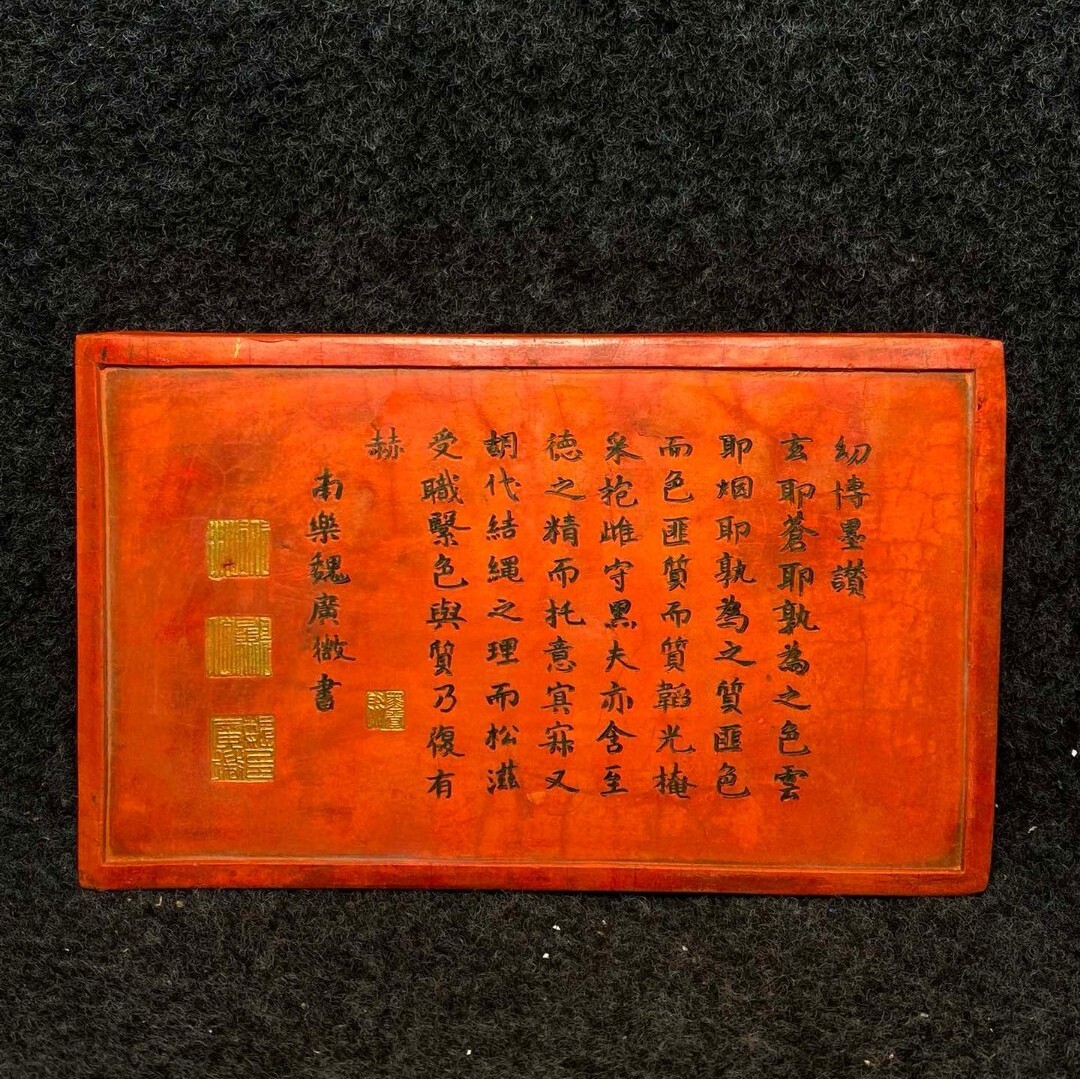 幼博墨讃
玄耶蒼耶孰為之色雲
耶烟耶孰為之質匪色
而色匪質而質韜光掩
采抱雌守黒夫亦含至
徳之精而托意寅寂又
胡代結繩之理而松滋
受職繄色與質乃復有
赫
南樂魏廣微書